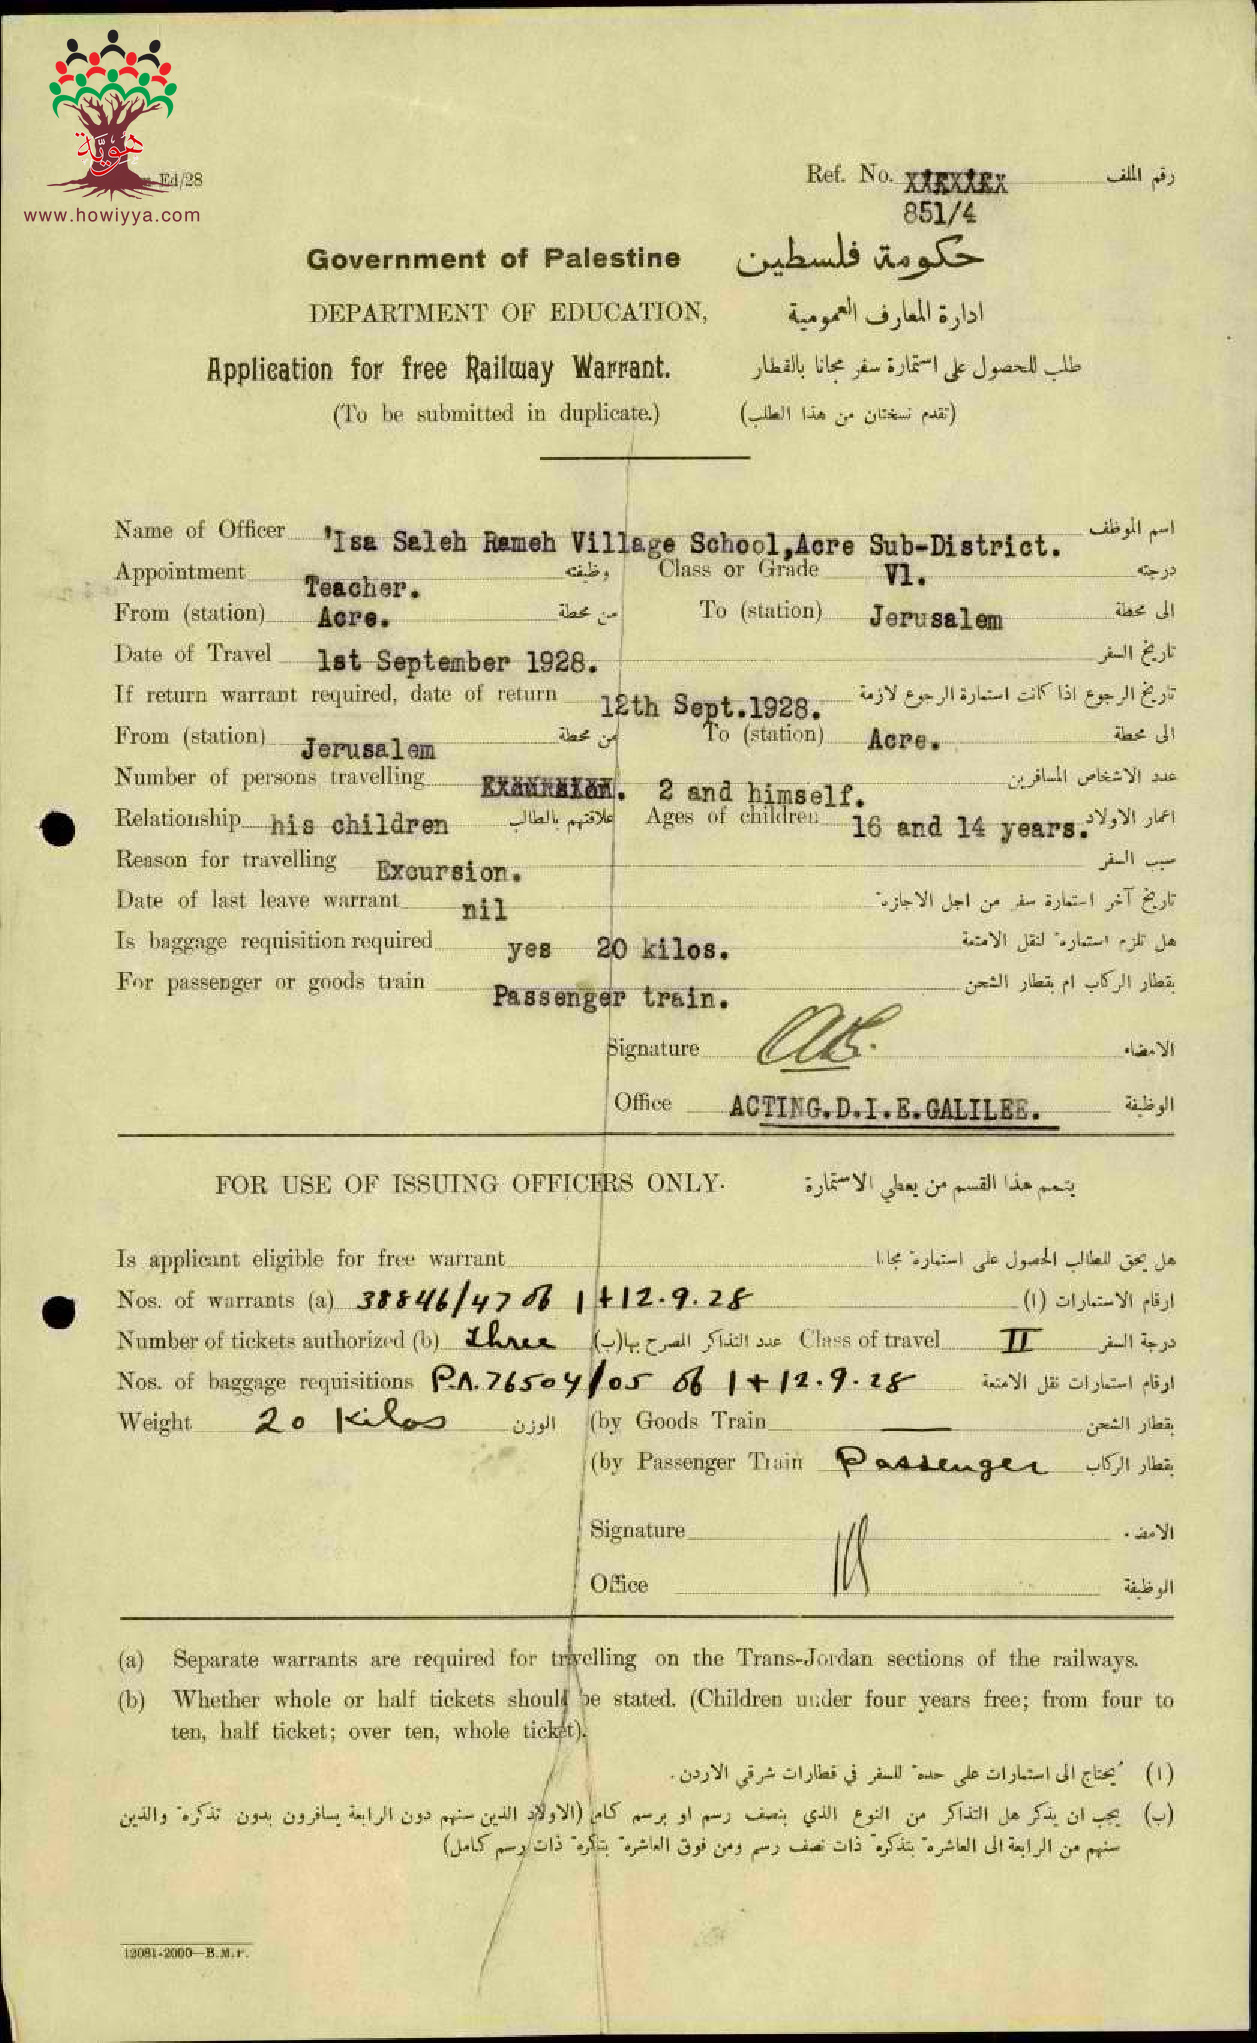 هوية
www.howiyya.com
Ed/28
Ref. No. رقم الملف
851/4
Government of Palestine حكومة فلسطين
DEPARTMENT OF EDUCATION, ادارة المعارف العمومية
Application for free Railway Warrant. طلب للحصول على استمارة سفر مجانا بالقطار
(To be submitted in duplicate.) (تقدم نسختان من هذا الطلب)
Name of Officer 'Isa Saleh Rameh Village School, Acre Sub-District. اسم الموظف
Appointment Teacher. وظيفته Class or Grade V1. درجته
From (station) Acre. من محطة To (station) Jerusalem الى محطة
Date of Travel 1st September 1928. تاريخ السفر
If return warrant required, date of return 12th Sept.1928. تاريخ الرجوع اذا كانت استمارة الرجوع لازمة
From (station) Jerusalem من محطة To (station) Acre. الى محطة
Number of persons travelling Excursion. 2 and himself. عدد الاشخاص المسافرين
Relationship his children علاقتهم بالطالب Ages of children 16 and 14 years. اعمار الاولاد
Reason for travelling Excursion. سبب السفر
Date of last leave warrant nil تاريخ آخر استمارة سفر من اجل الاجازة
Is baggage requisition required yes 20 kilos. هل تلزم استمارة لنقل الامتعة
For passenger or goods train Passenger train. بقطار الركاب ام بقطار الشحن
Signature الامضاء
Office ACTING.D.I.E.GALILEE. الوظيفة
FOR USE OF ISSUING OFFICERS ONLY. يتمم هذا القسم من يعطي الاستمارة
Is applicant eligible for free warrant هل يحق للطالب الحصول على استمارة مجانا
Nos. of warrants (a) 38846/47 of 1 + 12.9.28 ارقام الاستمارات (ا)
Number of tickets authorized (b) three عدد التذاكر المصرح بها (ب) Class of travel II درجة السفر
Nos. of baggage requisitions P.A. 76504/05 of 1 + 12.9.28 ارقام استمارات نقل الامتعة
Weight 20 Kilos الوزن (by Goods Train — بقطار الشحن
(by Passenger Train Passenger بقطار الركاب
Signature الامضاء
Office الوظيفة
(a) Separate warrants are required for travelling on the Trans-Jordan sections of the railways.
(b) Whether whole or half tickets should be stated. (Children under four years free; from four to
ten, half ticket; over ten, whole ticket).
(ا) يحتاج الى استمارات على حدة للسفر في قطارات شرقي الاردن.
(ب) يجب ان يذكر هل التذاكر من النوع الذي بنصف رسم او برسم كامل (الاولاد الذين سنهم دون الرابعة يسافرون بدون تذكرة والذين
سنهم من الرابعة الى العاشرة بتذكرة ذات نصف رسم ومن فوق العاشرة بتذكرة ذات رسم كامل)
12081-2000—B.M.P.